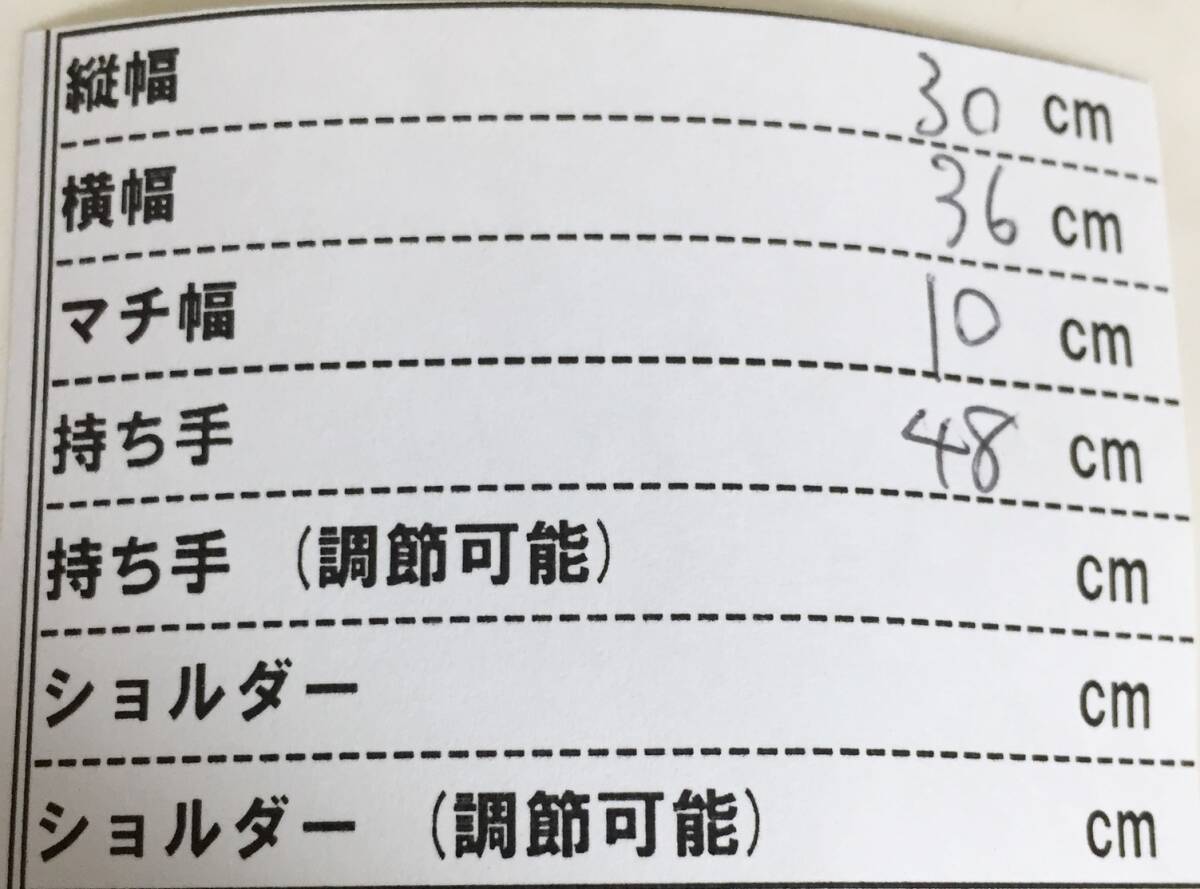 縦幅 30 cm
横幅 36 cm
マチ幅 10 cm
持ち手 48 cm
持ち手 (調節可能) cm
ショルダー cm
ショルダー (調節可能) cm